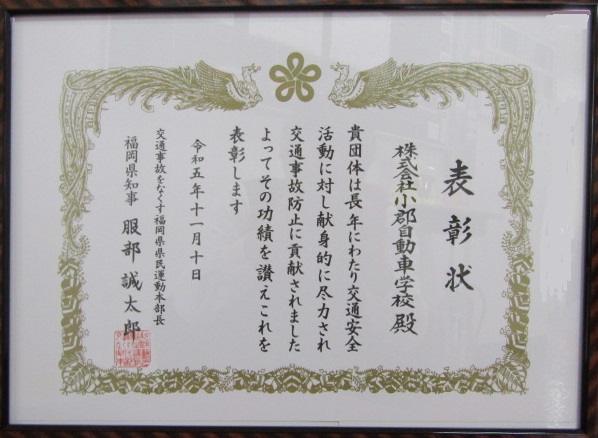 表彰状
株式会社小郡自動車学校 殿
貴団体は長年にわたり交通安全
活動に対し献身的に尽力され
交通事故防止に貢献されました
よってその功績を讃えこれを
表彰します
令和五年十一月十日
交通事故をなくす福岡県県民運動本部長
福岡県知事 服部誠太郎